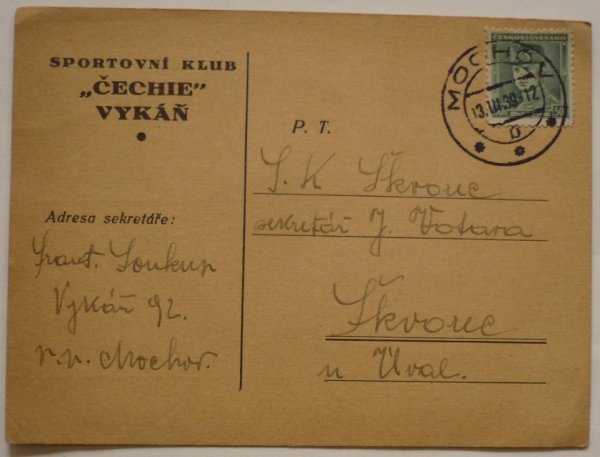 SPORTOVNÍ KLUB
„ČECHIE"
VYKÁŇ
Adresa sekretáře:
Frant. Soukup
Vykáň 92.
p. p. Mochov.
ČESKOSLOVENSKO
50
MOCHOV
13.III.39-12
b
P. T.
S. K Škvorec
sekretář J. Votava
Škvorec
u Úval.